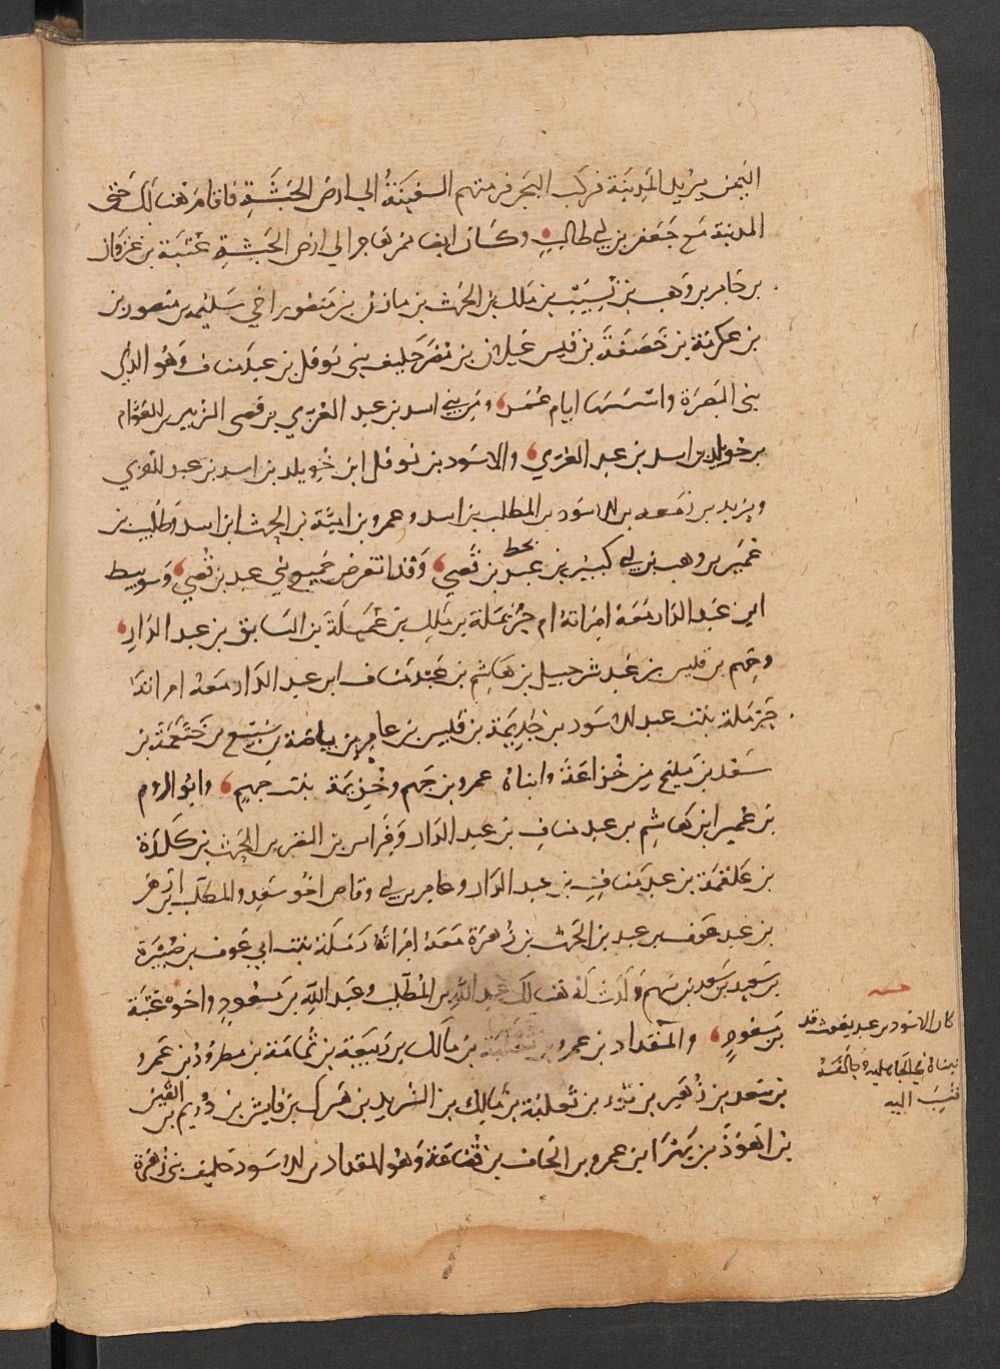 اليمن يريد المدينة فركب البحر فرمتهم السفينة الي ارض الحبشة فاقام هنالك حتى
المدينة مع جعفر بن ابي طالب وكان ايضا ممن هاجر الي ارض الحبشة عتبة بن غزوان
بن جابر بن وهب بن نسيب بن ملك بن الحرث بن مازن بن منصور اخي سليم بن منصور بن
بن عكرمة بن خصفة بن قيس عيلان بن مضر حليف بني نوفل بن عبد مناف وهو الذي
بنى البصرة واسسها ايام عمر ومن بني اسد بن عبد العزي بن قصي الزبير بن العوام
بن خويلد بن اسد بن عبد العزي والاسود بن نوفل ابن خويلد بن اسد بن عبد العزي
ويزيد بن زمعه بن الاسود بن المطلب بن اسد وعمرو بن امية بن الحرث ابن اسد وطليب بن
عمير بن وهب بن ابي كبير بن عبد بن قصي وقد انقرض جميع بني عبد بن قصي وسويبط
ابن عبد الدار معه امراته ام حرملة بن ملك بن عميلة بن السابق بن عبد الدار
وجهم بن قيس بن عبد شرحبيل بن هاشم بن عبد مناف ابن عبد الدار معه امراته
حرملة بنت عبد الاسود بن جذيمة بن قيس بن عامر بن بياضة بن سبيع بن خثعمة بن
سعد بن مليح من خزاعة وابناه عمرو بن جهم وخزيمة بنت جهم وابو الروم
بن عمير ابن هاشم بن عبد مناف بن عبد الدار وفراس بن النضر بن الحرث بن كلدة
بن علقمة بن عبد مناف بن عبد الدار وعامر بن ابي وقاص اخو سعد والمطلب ازهر
بن عبد عوف بن عبد بن الحرث بن زهرة معه امراته رملة بنت ابي عوف بن ضبيرة
بن سعيد بن سعد بن سهم ولدت له هنالك عبد الله بن المطلب وعبد الله بن مسعود واخوه عتبة
بن مسعود والمقداد بن عمرو بن ثعلبة بن مالك بن ربيعة بن ثمامة بن مطرود بن عمرو
بن سعد بن زهير بن ثور بن ثعلبة بن مالك بن الشريد بن هزل بن فايش بن دريم بن القين
بن اهوذ بن بهرا بن عمرو بن الحاف بن قضاعة وهو المقداد بن الاسود حليف بني زهرة
كان الاسود بن عبد يغوث قد
تبناه في الجاهلية وحالفه
فنسب اليه